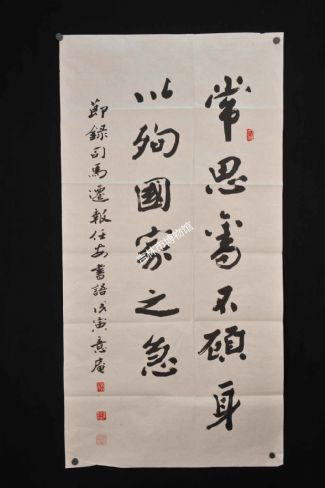 常思奮不顧身
以殉國家之急
節錄司馬遷報任安書語戊寅意庵
吉林省博物馆